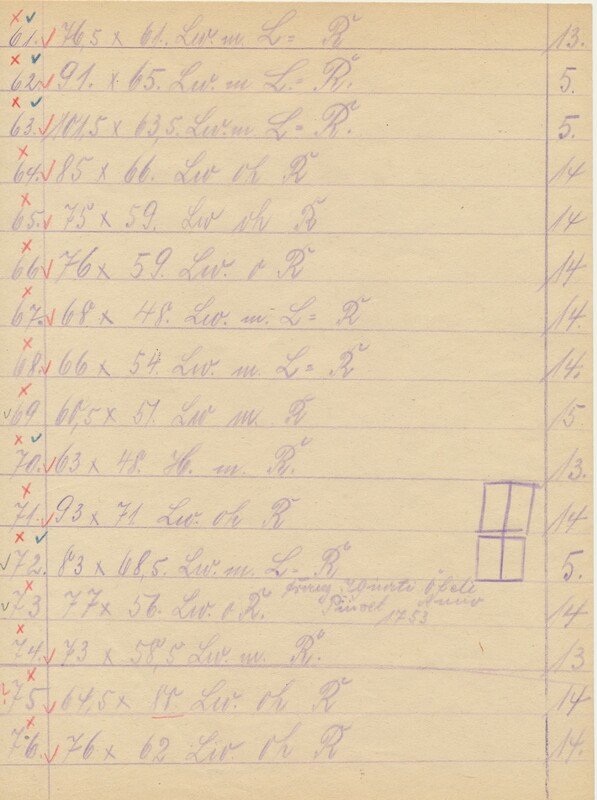 61. 76,5 x 61. Lw. m. L= R 13.
62 91. x 65. Lw. m L= R. 5.
63. 101,5 x 63,5. Lw. m L= R. 5.
64. 85 x 66. Lw oh R 14
65. 75 x 59. Lw oh R 14
66 76 x 59. Lw. o R 14
67. 68 x 48. Lw. m. L= R 14.
68. 66 x 54. Lw. m. L= R 14.
69 60,5 x 51. Lw m. R 15
70. 63 x 48. H. m. R. 13.
71. 93 x 71. Lw. oh R 14
72. 83 x 68,5. Lw. m. L= R 5.
73 77 x 56. Lw. o R. 14
Anno
1753
74. 73 x 58,5 Lw. m. R. 13
? 75 64,5 x Lw. oh R 14
76. 76 x 62 Lw. oh R 14.